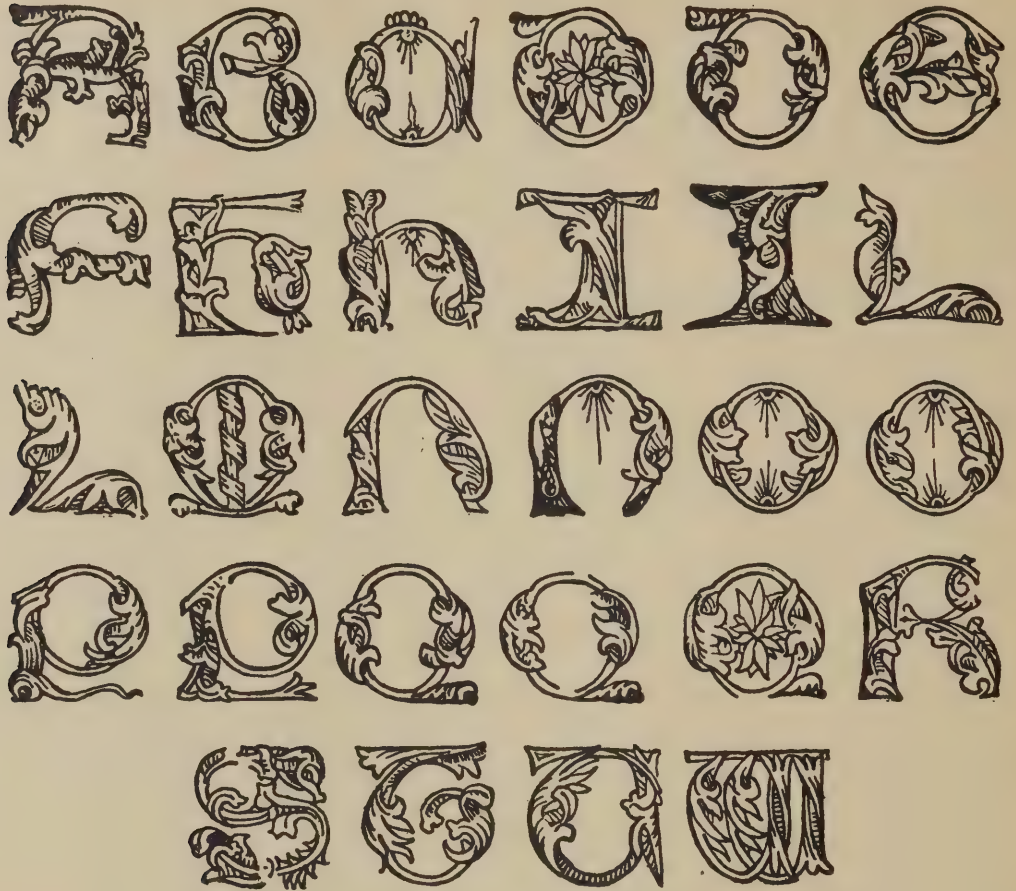 A B C D D E
F H H I I L
L M N N O O
P P Q Q Q R
S T U W